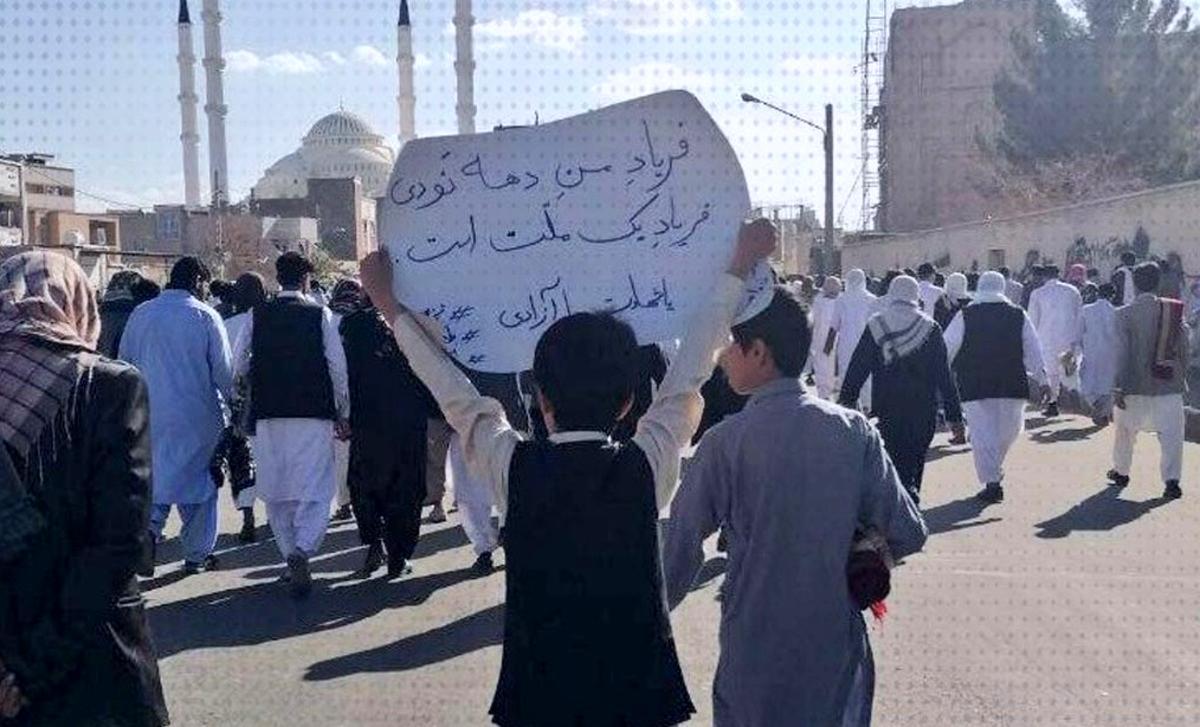 فریادِ منِ دهه نودی
فریادِ یک ملّت است.
یا شهادت یا آزادی